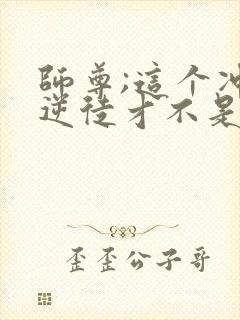 師尊;這个冲
逆徒才不是
歪歪公子哥